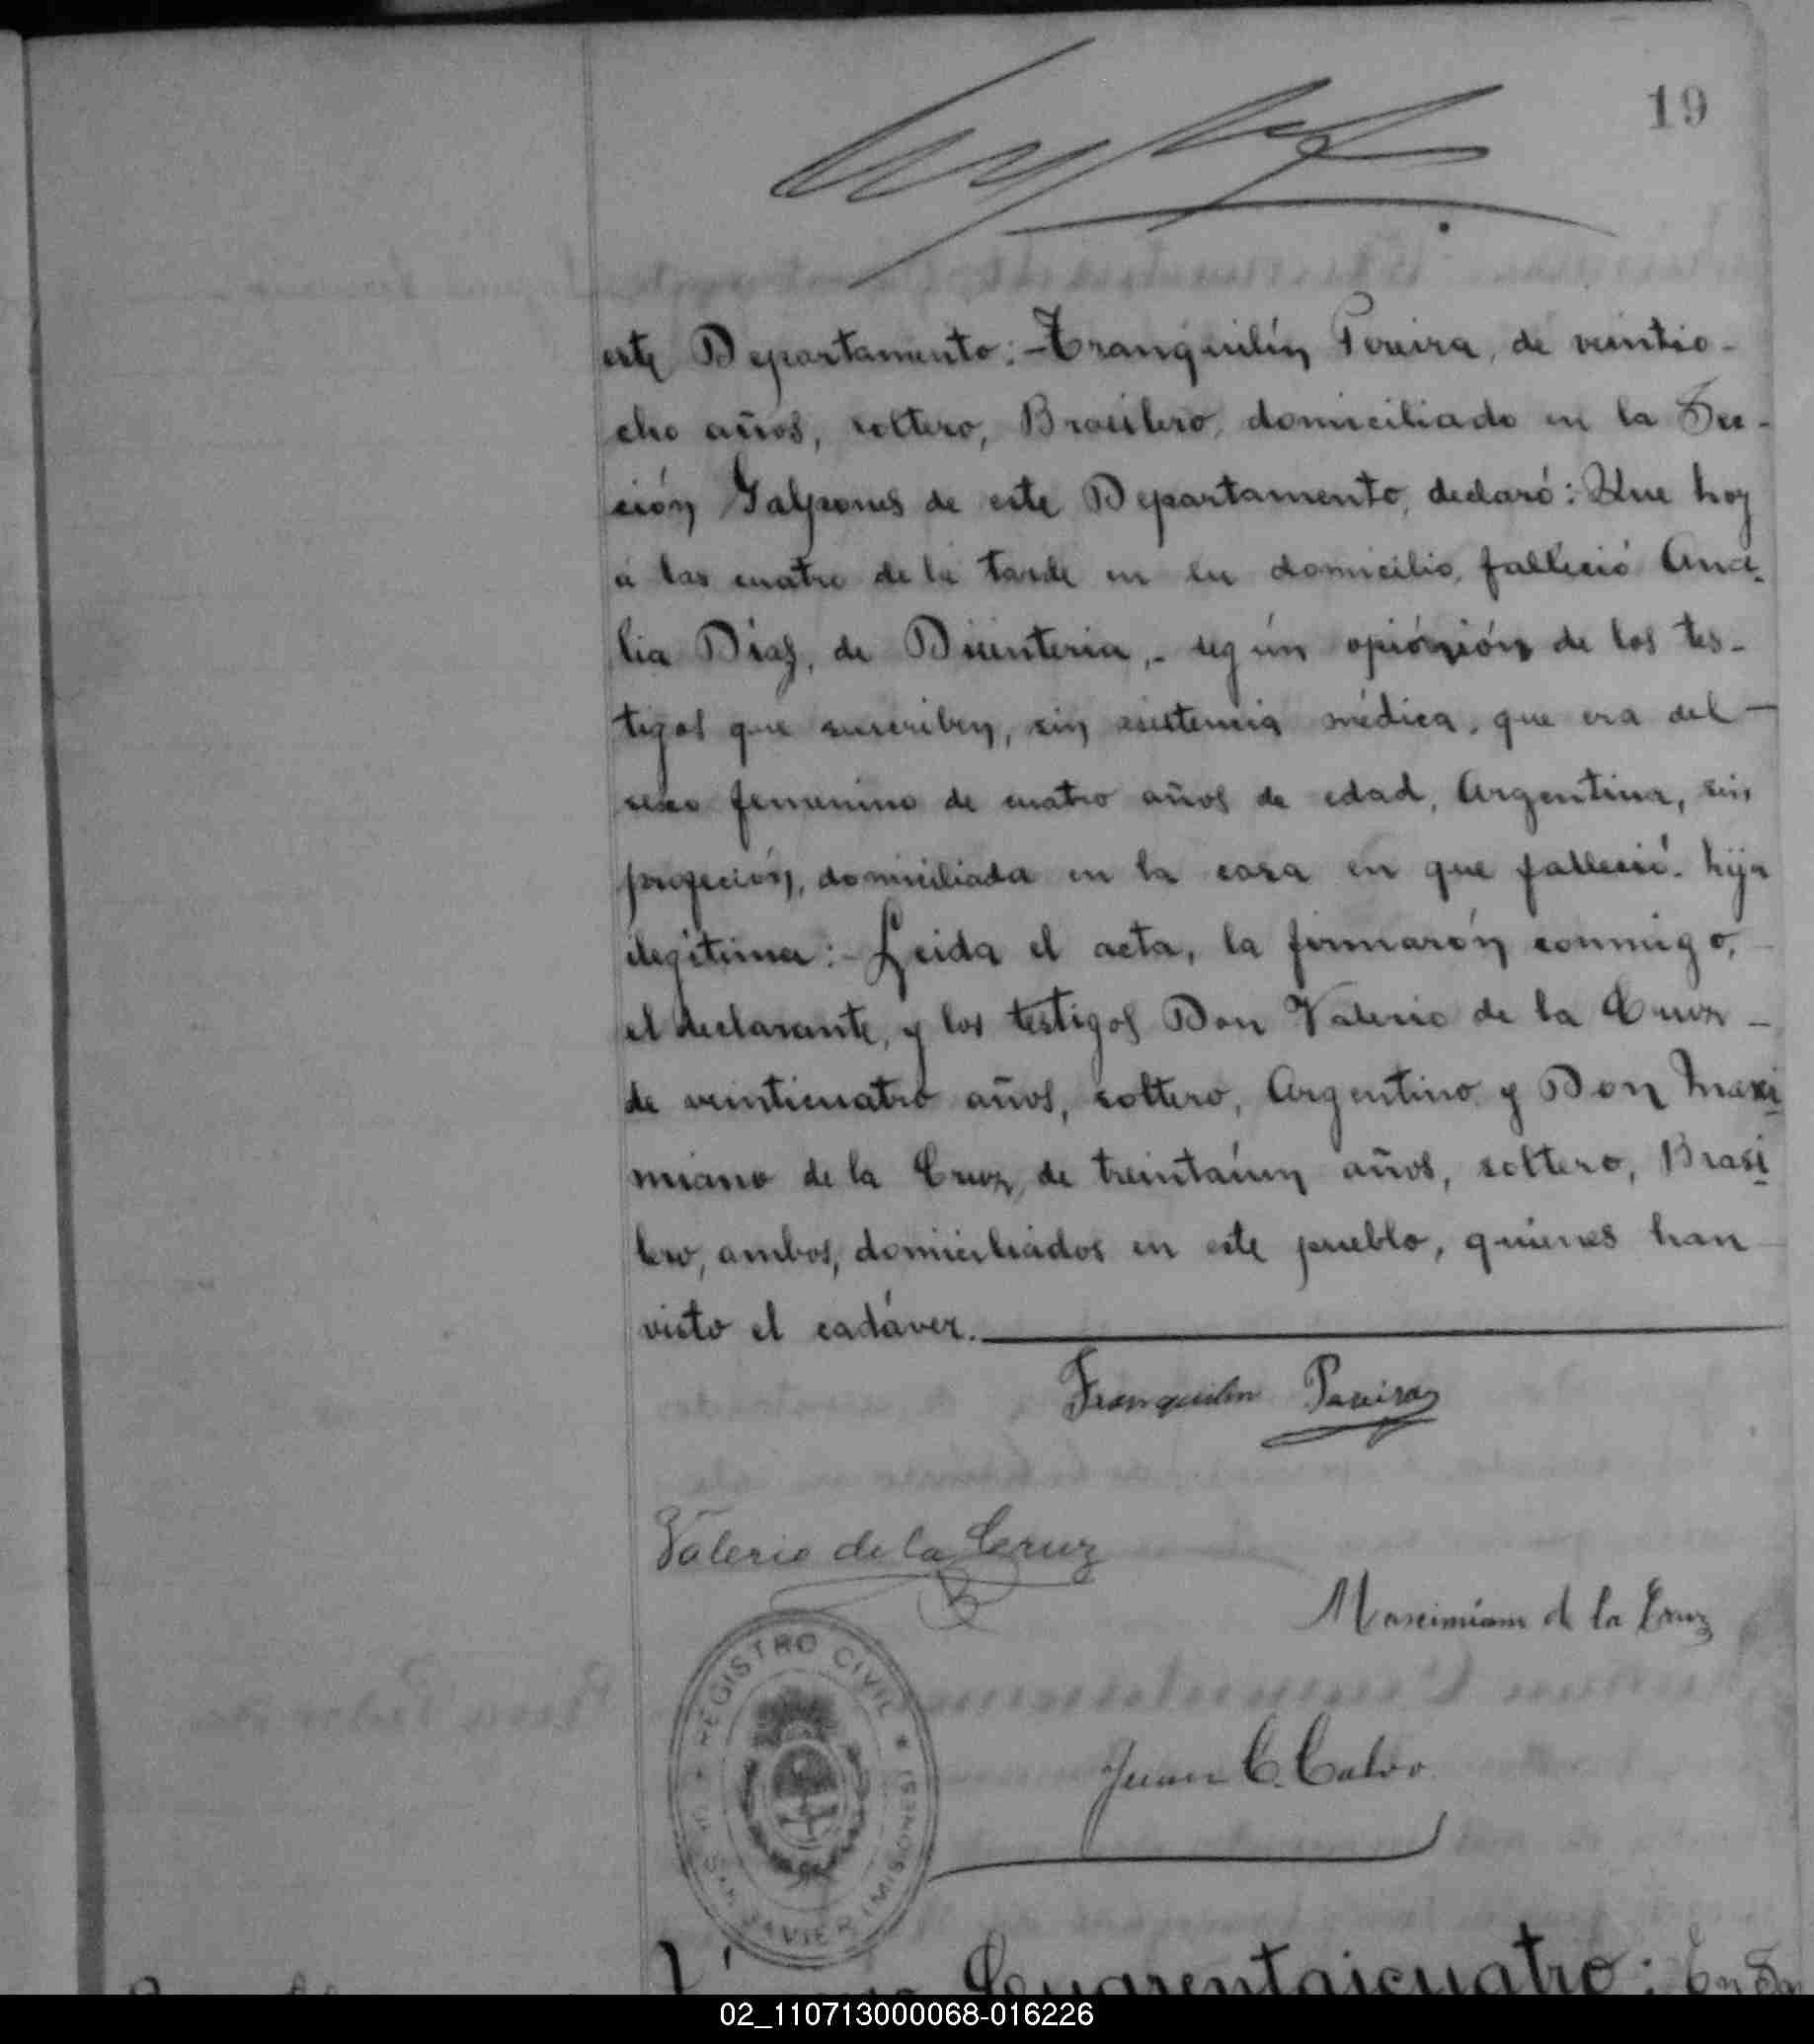 19
este Departamento: - Tranquilín Pereira, de veintio-
cho años, soltero, Brasilero, domiciliado en la Sec-
ción Galpones de este Departamento, declaró: Que hoy
á las cuatro de la tarde en su domicilio, falleció Ana-
lia Díaz, de Disenteria, - según opinión de los tes-
tigos que suscriben, sin asistencia médica, que era del -
sexo femenino de cuatro años de edad, Argentina, sin
profeción, domiciliada en la casa en que falleció. hija
ilegitima: - Leida el acta, la firmarón conmigo,
el declarante, y los testigos Don Valerio de la Cruz -
de veinticuatro años, soltero, Argentino y Don Maxi-
miano de la Cruz, de treintaún años, soltero, Brasi-
lero, ambos, domiciliados en este pueblo, quienes han
visto el cadáver.
Tranquilin Pereira
Valerio de la Cruz
Mascimiano de la Cruz
REGISTRO CIVIL * DE SAN JAVIER (MISIONES) *
Juan C. Calvo
Cuarentaicuatro: En San
02_110713000068-016226